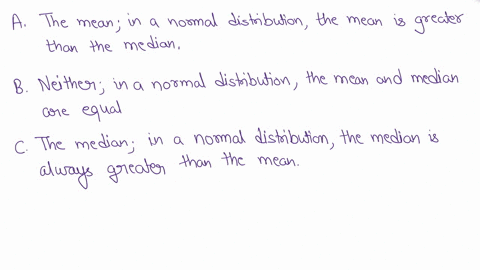 A. The mean; in a normal distribution, the mean is greater
than the median.
B. Neither; in a normal distribution, the mean and median
are equal
C. The median; in a normal distribution, the median is
always greater than the mean.